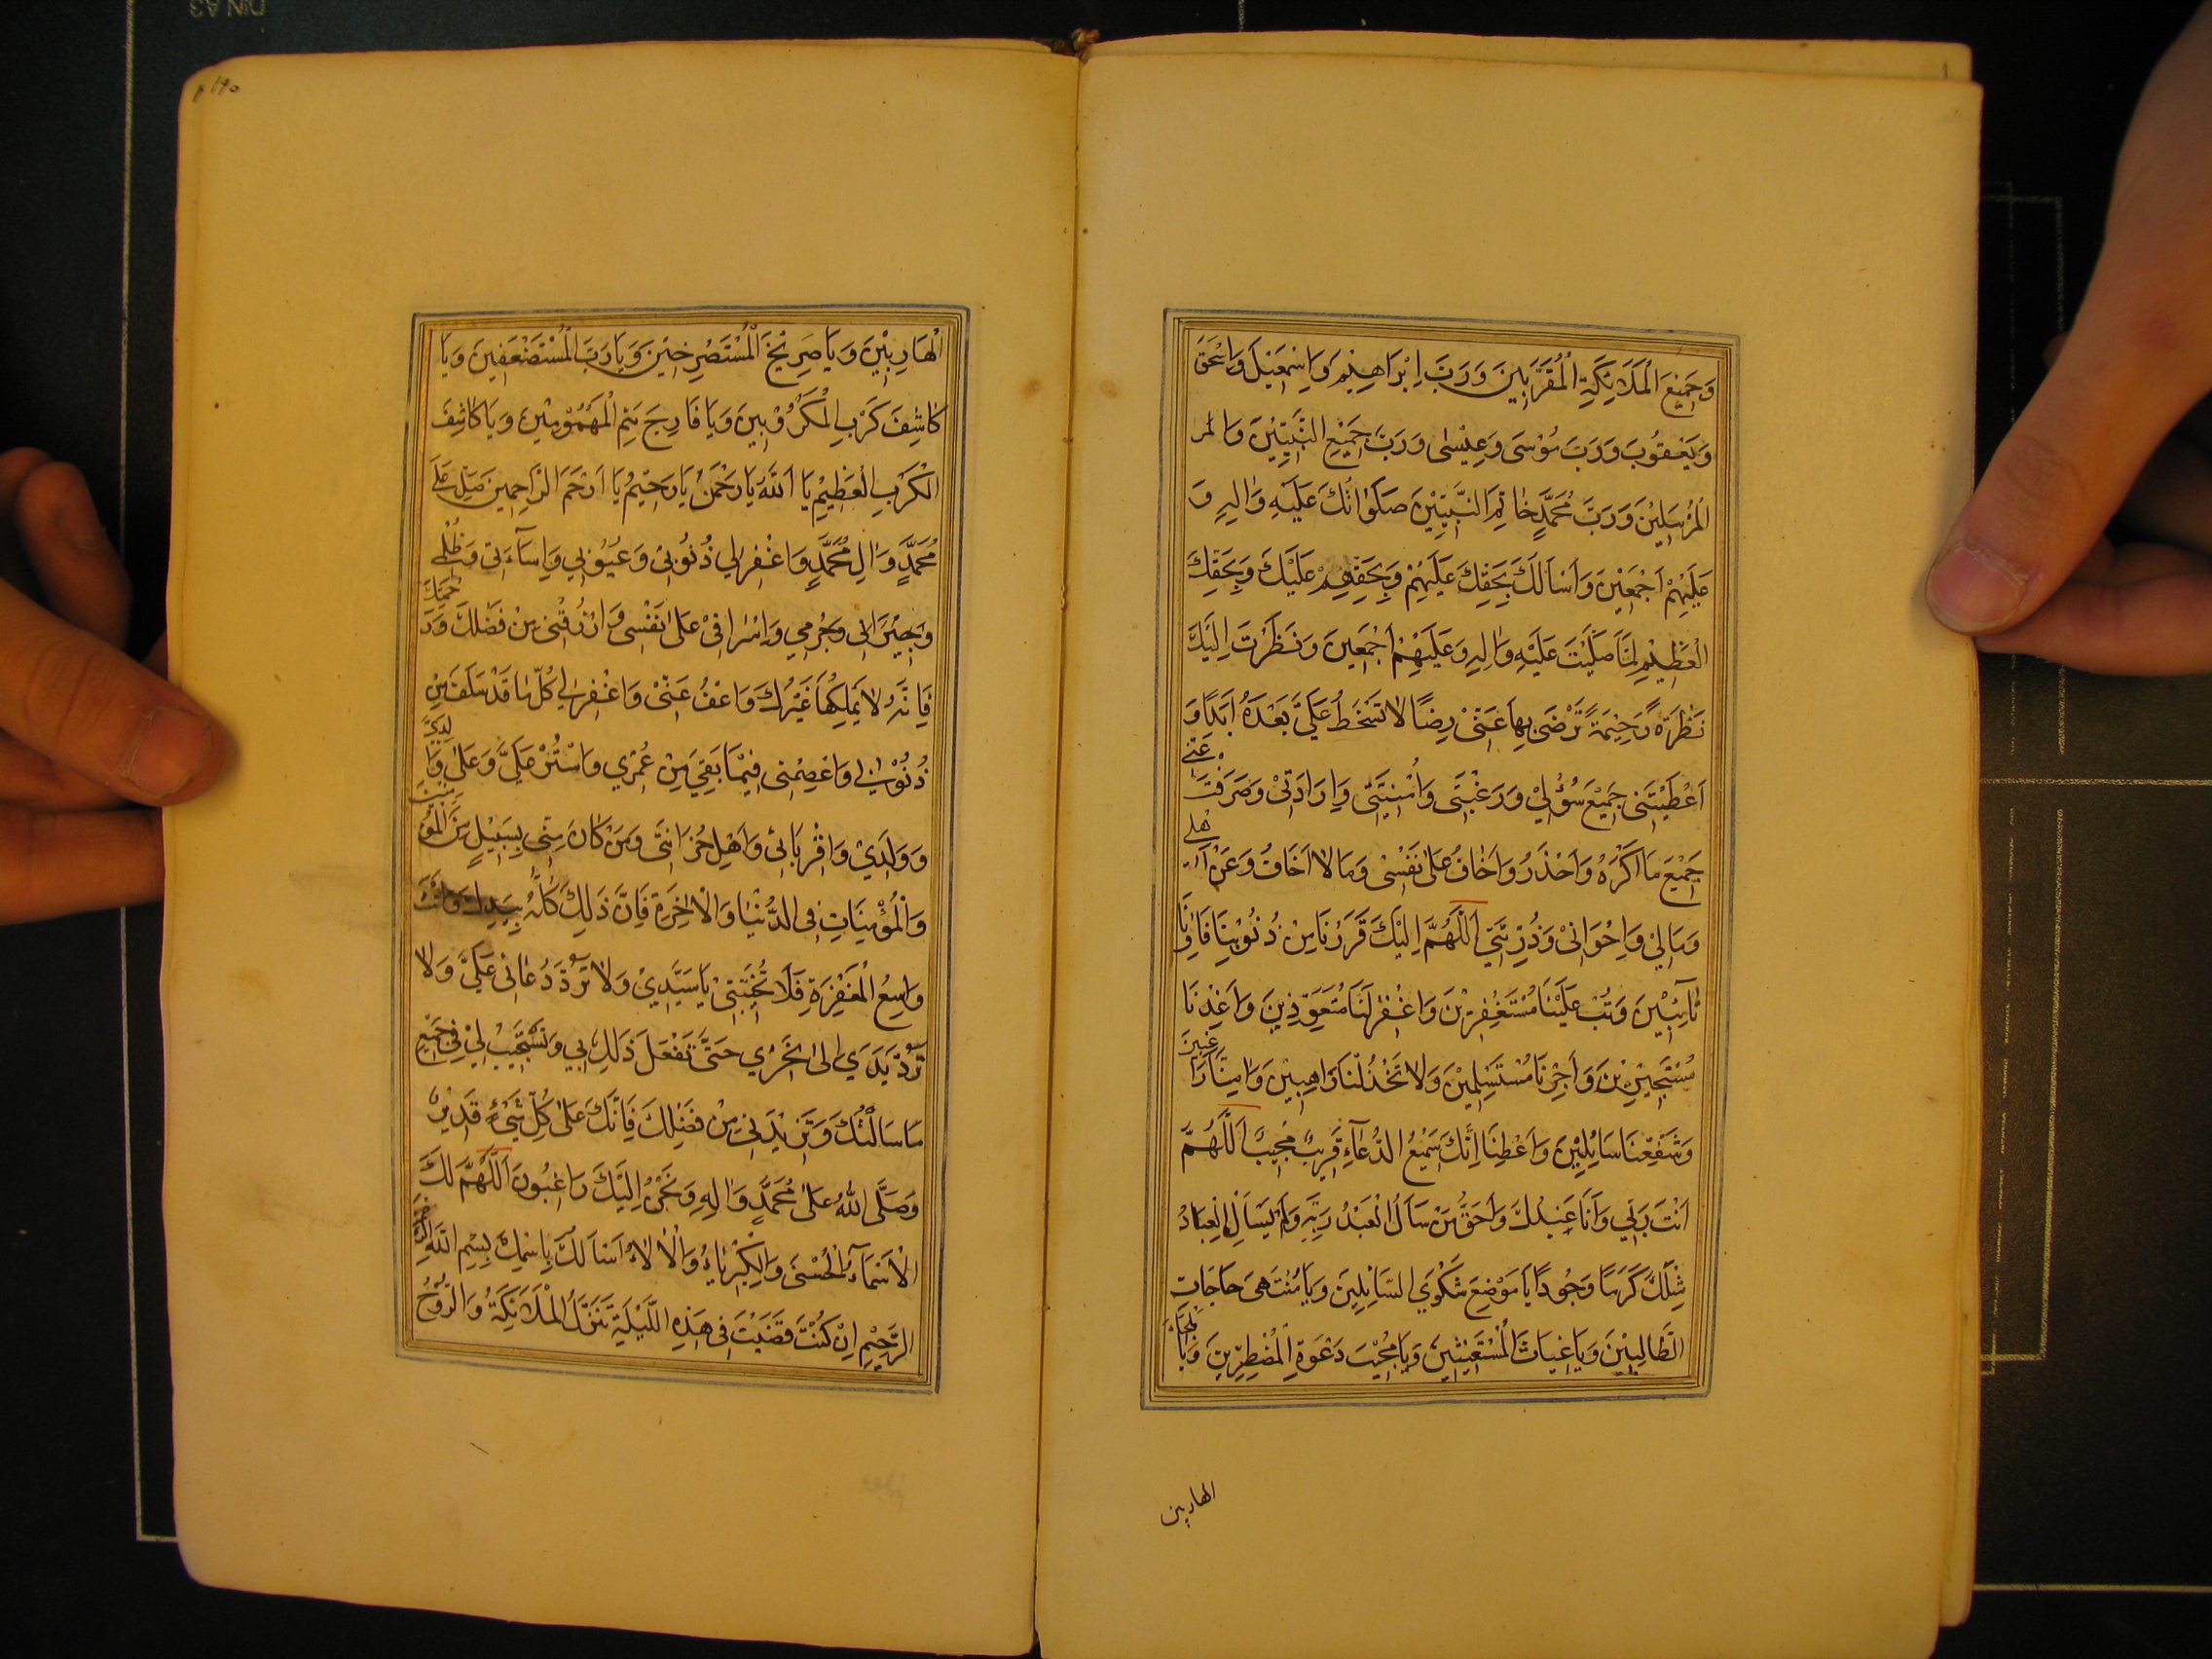 وَجَمِيْعَ الْمَلَائِكَةِ الْمُقَرَّبِينَ وَرَبَّ اِبْرَاهِيْمَ وَاِسْمٰعِيْلَ وَاِسْحٰقَ
وَيَعْقُوْبَ وَرَبَّ مُوْسَى وَعِيْسٰى وَرَبَّ جَمِيْعِ النَّبِيِّيْنَ وَ
الْمُرْسَلِيْنَ وَرَبَّ مُحَمَّدٍ خَاتِمِ النَّبِيِّيْنَ صَلَوَاتُكَ عَلَيْهِ وَاٰلِهِ وَ
عَلَيْهِمْ اَجْمَعِيْنَ وَاَسْاَلُكَ بِحَقِّكَ عَلَيْهِمْ وَبِحَقِّهِمْ عَلَيْكَ وَبِحَقِّكَ
الْعَظِيْمِ لَمَّا صَلَّيْتَ عَلَيْهِ وَاٰلِهِ وَعَلَيْهِمْ اَجْمَعِينَ وَنَظَرْتَ اِلَيَّ
نَظْرَةً رَحِيْمَةً تَرْضَى بِهَا عَنِّىْ رِضًا لَا تَسْخَطُ عَلَيَّ بَعْدَهُ اَبَدًا وَ
اَعْطَيْتَنِى جَمِيْعَ سُؤْلِيْ وَرَغْبَتِى وَاُمْنِيَّتِى وَاِرَادَتِىْ وَصَرَفْتَ عَنِّي
جَمِيْعَ مَا اَكْرَهُ وَاَحْذَرُ وَاَخَافُ عَلٰى نَفْسِىْ وَمَا لَا اَخَافُ وَعَنْ اَهْلِي
وَمَالِيْ وَاِخْوَانِىْ وَذُرِّيَّتِي اَللّٰهُمَّ اِلَيْكَ فَرَرْنَا مِنْ ذُنُوْبِنَا فَاٰوِنَا
تَآئِبِيْنَ وَتُبْ عَلَيْنَا مُسْتَغْفِرِيْنَ وَاغْفِرْلَنَا مُتَعَوِّذِينَ وَاَعِذْنَا
مُسْتَجِيْرِيْنَ وَاَجِرْنَا مُسْتَسْلِمِيْنَ وَلَا تَخْذُلْنَا رَاهِبِيْنَ وَاٰمِنَّا رَاغِبِينَ
وَشَفِّعْنَا سَائِلِيْنَ وَاَعْطِنَا اِنَّكَ سَمِيْعُ الدُّعَآءِ قَرِيبٌ مُجِيبٌ اَللّٰهُمَّ
اَنْتَ رَبِّي وَاَنَا عَبْدُكَ وَاَحَقُّ مَنْ سَاَلَ الْعَبْدُ رَبَّهُ وَلَمْ يَسْاَلِ الْعِبَادُ
مِثْلَكَ كَرَمًا وَجُوْدًا يَا مَوْضِعَ شَكْوَى السَّائِلِينَ وَيَا مُنْتَهٰى حَاجَاتِ
الطَّالِبِيْنَ وَيَا غِيَاثَ الْمُسْتَغِيْثِيْنَ وَيَا مُجِيْبَ دَعْوَةِ الْمُضْطَرِّيْنَ وَيَا مَلْجَأَ
الهاربين
١٩٠
الْهَارِبِيْنَ وَيَا صَرِيْخَ الْمُسْتَصْرِخِيْنَ وَيَا رَبَّ الْمُسْتَضْعَفِيْنَ وَيَا
كَاشِفَ كَرْبِ الْمَكْرُوْبِيْنَ وَيَا فَارِجَ هَمِّ الْمَهْمُوْمِيْنَ وَيَا كَاشِفَ
الْكَرْبِ الْعَظِيْمِ يَا اَللّٰهُ يَا رَحْمٰنُ يَا رَحِيْمُ يَا اَرْحَمَ الرَّاحِمِينَ صَلِّ عَلَى
مُحَمَّدٍ وَاٰلِ مُحَمَّدٍ وَاغْفِرْ لِي ذُنُوْبِىْ وَعُيُوْبِي وَاِسَآءَتِى وَظُلْمِي
وَ وَجُرْمِي وَاِسْرَافِىْ عَلٰى نَفْسِى وَارْزُقْنِىْ مِنْ فَضْلِكَ وَرَحْمَتِكَ
فَاِنَّهُ لَا يَمْلِكُهَا غَيْرُكَ وَاعْفُ عَنِّىْ وَاغْفِرْ لِي كُلَّ مَا قَدْ سَلَفَ مِنْ
ذُنُوْبِي وَاعْصِمْنِى فِيْمَا بَقِيَ مِنْ عُمُرِي وَاسْتُرْ عَلَيَّ وَعَلٰى وَالِدَيَّ
وَوَلَدِيْ وَاَقْرِبَائِى وَاَهْلِ حُزَانَتِى وَمَنْ كَانَ مِنِّى بِسَبِيْلٍ مِنَ الْمُؤْمِنِينَ
وَالْمُؤْمِنَاتِ فِى الدُّنْيَا وَالْاٰخِرَةِ فَاِنَّ ذَلِكَ كُلَّهُ بِيَدِكَ وَاَنْتَ
وَاسِعُ الْمَغْفِرَةِ فَلَا تُخَيِّبْنِىْ يَا سَيِّدِيْ وَلَا تَرُدَّ دُعَائِى عَلَيَّ وَلَا
تَرُدَّ يَدَيَّ اِلٰى نَحْرِي حَتّٰى تَفْعَلَ ذَلِكَ بِي وَتَسْتَجِيْبَ لِيْ فِي جَمِيْعِ
مَا سَاَلْتُكَ وَتَزِيْدَنِىْ مِنْ فَضْلِكَ فَاِنَّكَ عَلٰى كُلِّ شَيْءٍ قَدِيْرٌ
وَصَلَّى اللّٰهُ عَلٰى مُحَمَّدٍ وَاٰلِهِ وَنَحْنُ اِلَيْكَ رَاغِبُونَ اَللّٰهُمَّ لَكَ
الْاَسْمَآءُ الْحُسْنٰى وَالْكِبْرِيَاءُ وَالْاٰلَاءُ اَسْاَلُكَ بِاِسْمِكَ بِسْمِ اللّٰهِ الرَّحْمٰنِ
الرَّحِيْمِ اِنْ كُنْتَ قَضَيْتَ فِى هٰذِهِ اللَّيْلَةِ تَنَزُّلَ الْمَلَائِكَةِ وَالرُّوْحِ